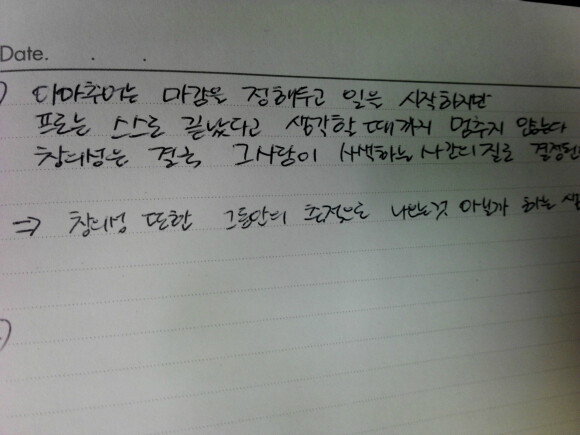 Date. . .
) 아마추어는 마감을 정해두고 일을 시작하지만
프로는 스스로 끝났다고 생각할 때까지 멈추지 않는다
창의성은 결국 그사람이 사색하는 시간의 질로 결정된
⇒ 창의성 또한 그동안의 축적으로 나오는것 아닐까 하는 생
)